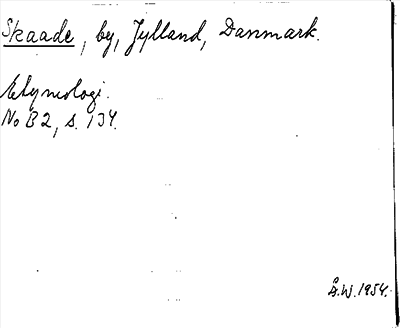 Skaade, by, Jylland, Danmark.
Etymologi.
No B2, s. 134.
Å.W. 1954.